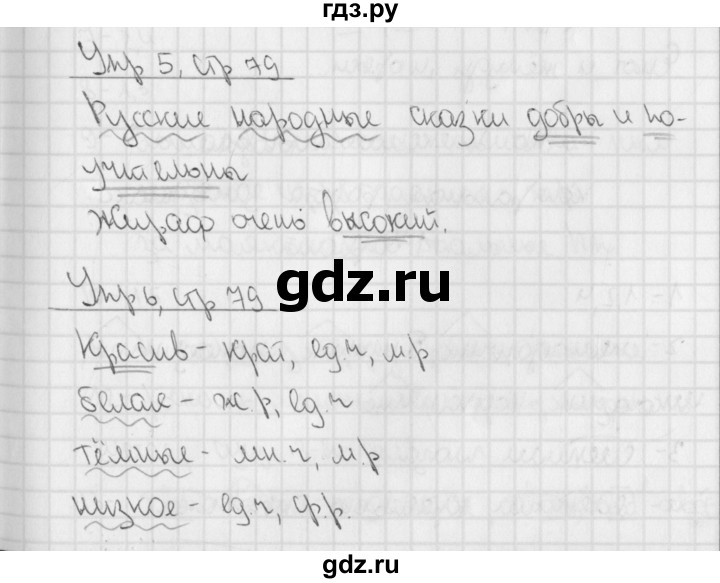 гдз.ру
Упр 5, стр 79
Русские народные сказки добры и по-
учительны
Жираф очень высокий.
gdz.ru
Упр 6, стр 79
Красив - край, ед.ч, м.р
белая - ж.р, ед.ч
тёмные - мн.ч, м.р
низкое - ед.ч, ср.р.
gdz.ru